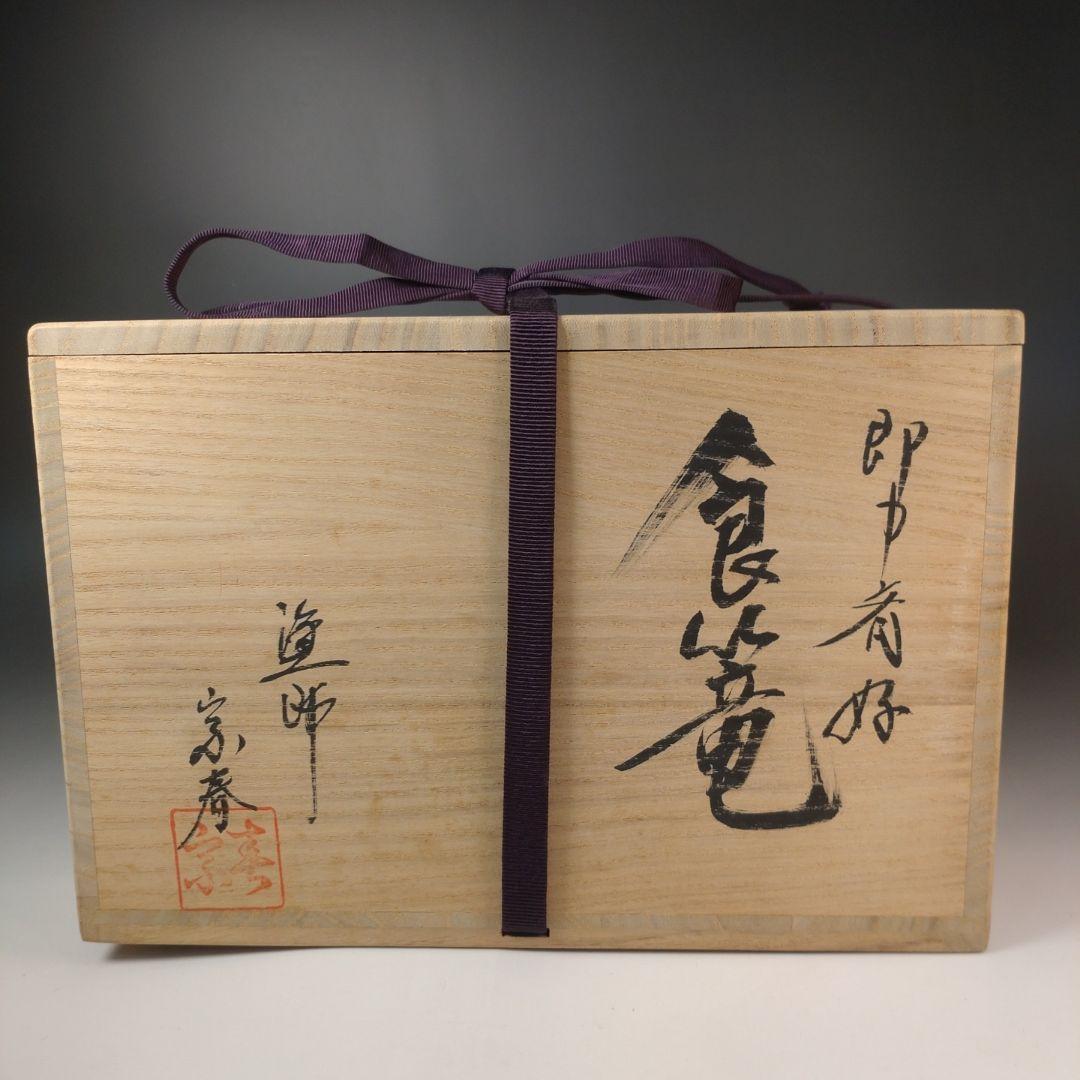 即中斎好
食籠
塗師
宗春
宗春